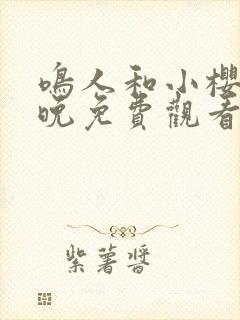 鳴人和小櫻
晚免費觀看
紫薯醬